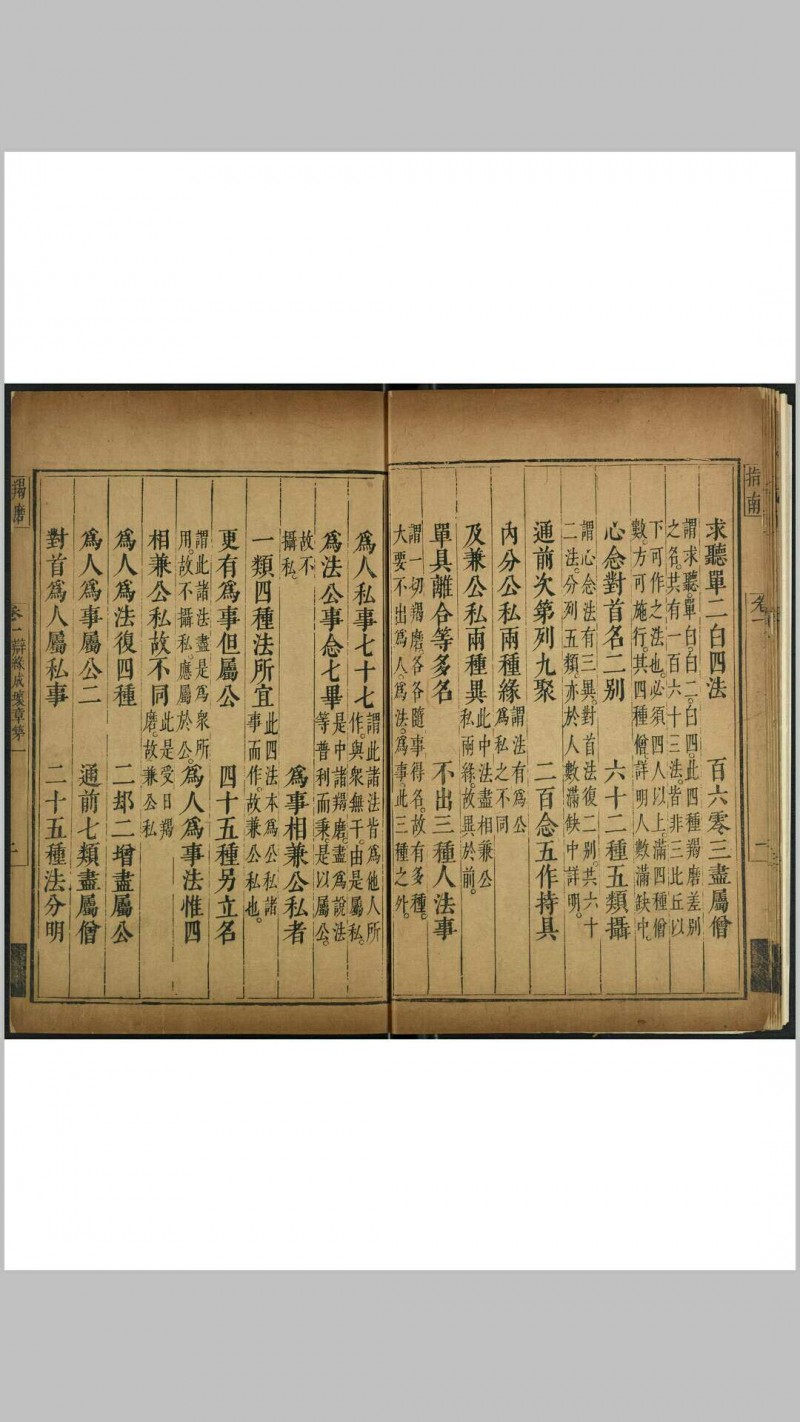 指南
卷一
一
求聽單二白四法　百六零三盡屬僧
謂求聽單白白二白四此四種羯磨差別
之名共有一百六十三法皆非三比丘以
下可作之法也必須四人以上滿四種僧
數方可施行其四種僧詳明人數滿缺中
心念對首名二別　六十二種五類攝
謂心念法有三異對首法復二別共六十
二法分列五類亦於人數滿缺中詳明
通前次第列九聚　二百念五作持具
內分公私兩種緣
謂法有為公
為私之不同
及兼公私兩種異
此中法盡相兼公
私兩緣故異於前
單具離合等多名　不出三種人法事
謂一切羯磨各各隨事得名故有多種
大要不出為人為法為事此三種之外
為人私事七十七
謂此諸法皆為他人所
作與衆無干由是屬私
為法公事念七畢
是中諸羯磨盡為說法
等普利而秉是以屬公
故不
攝私
為事相兼公私者
一類四種法所宜
此四法本為公私諸
事而作故兼公私也
更有為事但屬公　四十五種另立名
謂此諸法盡是為衆所
用故不攝私應屬於公
為人為事法惟四
相兼公私故不同
此是受日羯
磨故兼公私
為人為法復四種　二却二增盡屬公
為人為事屬公二　通前七類盡屬僧
對首為人屬私事　二十五種法分明
羯磨
卷一
辯緣成壞章第一
二